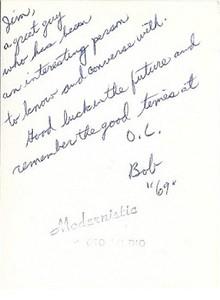 Jim,
a great guy
who has been
an interesting person
to know and converse with.
Good luck in the future and
remember the good times at
O.C.
Bob
"69"
Modernistic
OTO DIO